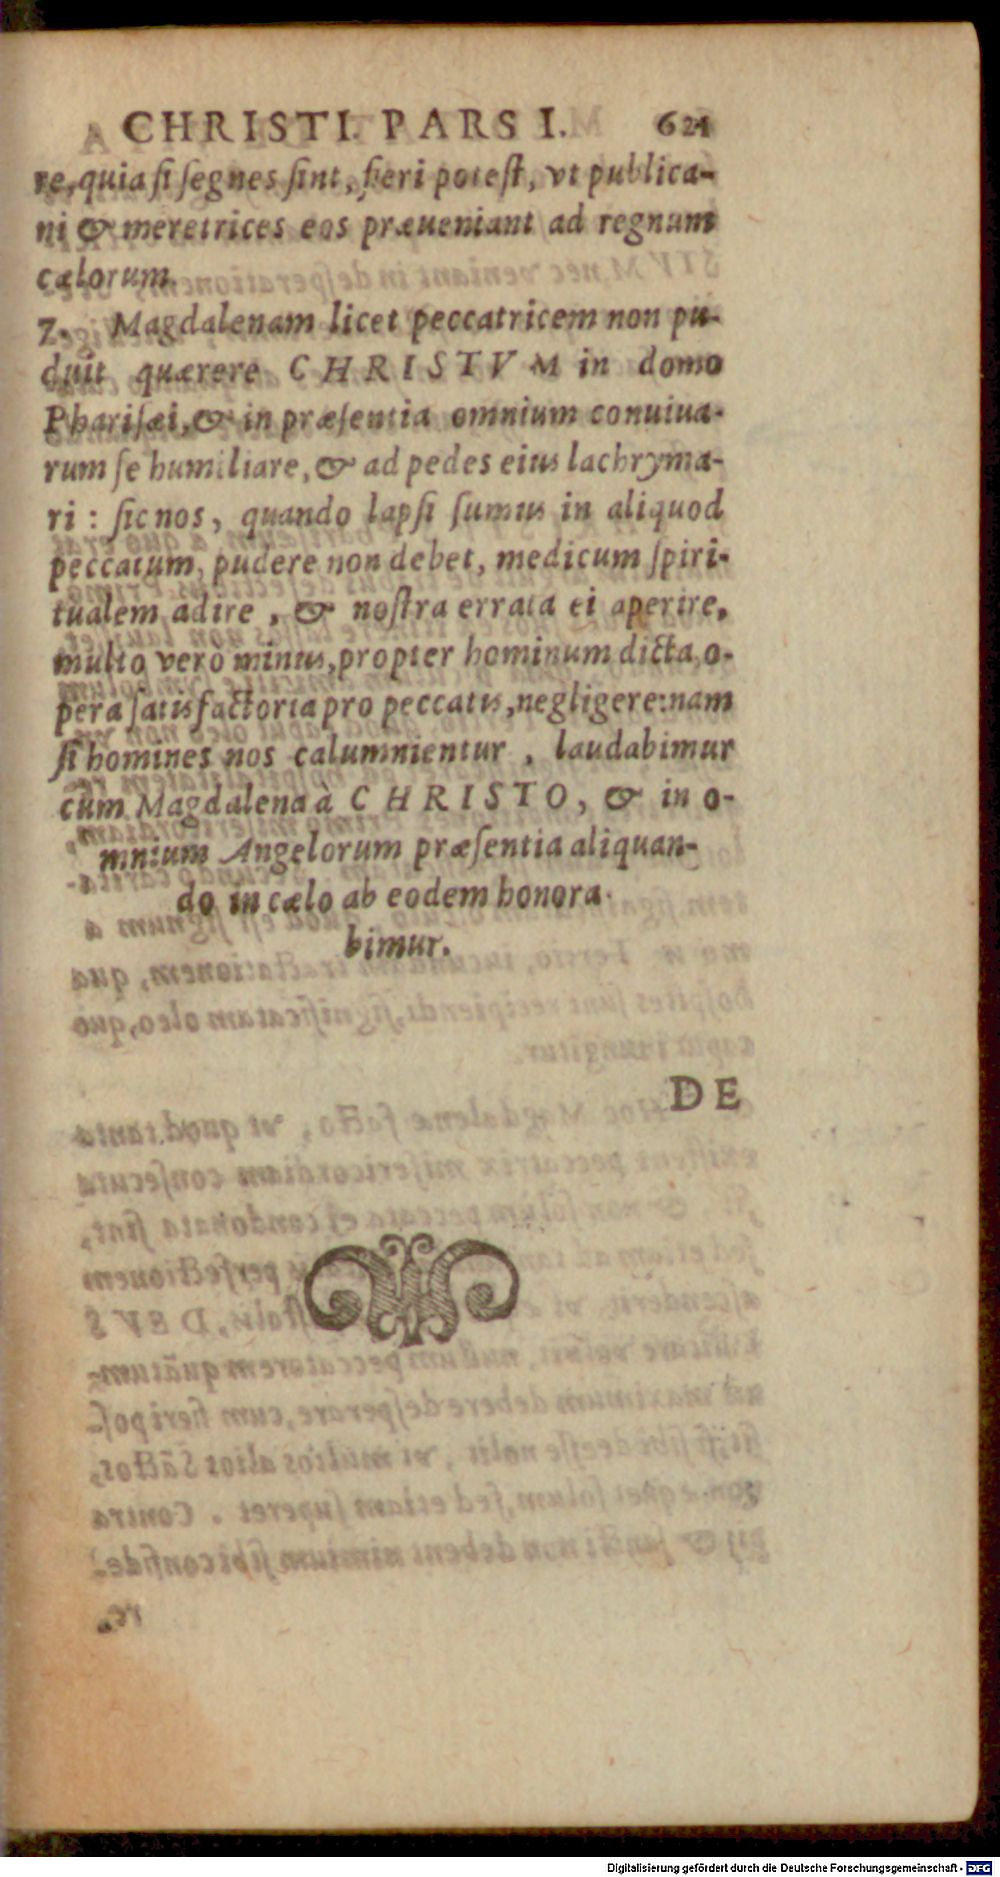 CHRISTI. PARS I. 621
re, quia ſi ſegnes ſint, fieri poteſt, vt publica-
ni & meretrices eos præueniant ad regnum
cælorum.
7. Magdalenam licet peccatricem non pu-
duit quærere CHRISTVM in domo
Phariſæi, & in præſentia omnium conuiua-
rum ſe humiliare, & ad pedes eius lachryma-
ri : ſic nos, quando lapſi ſumus in aliquod
peccatum, pudere non debet, medicum ſpiri-
tualem adire, & noſtra errata ei aperire,
multo verò minus, propter hominum dicta, o-
pera ſatisfactoria pro peccatis, negligere: nam
ſi homines nos calumnientur, laudabimur
cum Magdalena à CHRISTO, & in o-
mnium Angelorum præſentia aliquan-
do in cælo ab eodem honora-
bimur.
DE
Digitalisierung gefördert durch die Deutsche Forschungsgemeinschaft - DFG